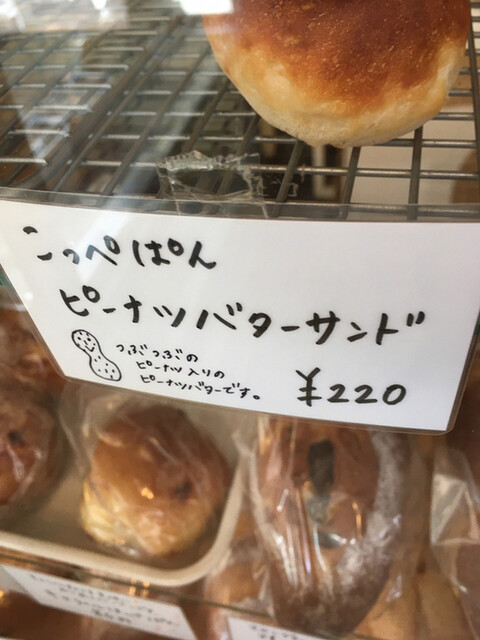 こっぺぱん
ピーナツバターサンド
つぶつぶの
ピーナツ入りの
ピーナツバターです。
¥220